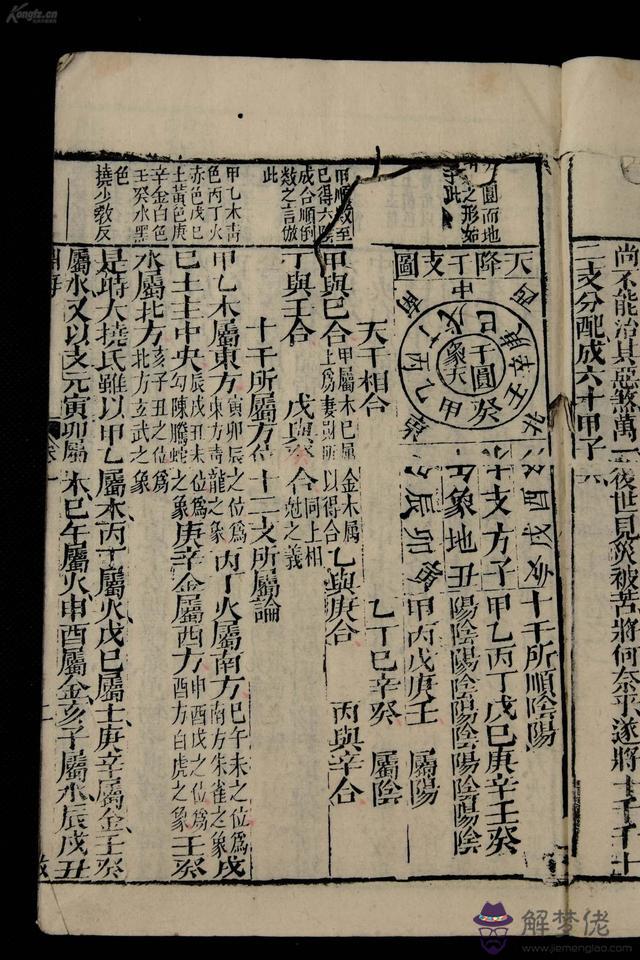 Kongfz.cn
尚不能治其惡煞萬一後世見災被苦將何奈乎遂將十干十
二支分配成六十甲子
天降干支圖
中
戊己
干圓象天
甲乙丙丁
壬癸
西
南
北
十支方子
象地丑
辰卯
酉戌
十干所順陰陽
甲乙丙丁戊己庚辛壬癸
陽陰陽陰陽陰陽陰陽陰
甲丙戊庚壬 屬陽
乙丁己辛癸 屬陰
天干相合
甲與己合 甲屬木己屬土爲妻財所以得合 乙與庚合 丙與辛合
丁與壬合 戊與癸合 同上相尅之義
十干所屬方位 十二支所屬論
甲乙木屬東方 寅卯辰之位爲東方青龍之象 丙丁火屬南方 巳午未之位爲南方朱雀之象 戊
己土主中央 辰戌丑未位爲勾陳騰蛇之象 庚辛金屬西方 申酉戌之位爲西方白虎之象 壬癸
水屬北方 亥子丑之位爲北方玄武之象
是時大撓氏雖以甲乙屬木丙丁屬火戊己屬土庚辛屬金壬癸
屬水又以支元寅卯屬木巳午屬火申酉屬金亥子屬水辰戌丑
圓而地
之形如
此
甲順數至
己得六陰
成合順倒
數之言倣
此
甲乙木青
色丙丁火
赤色戊己
土黃色庚
辛金白色
壬癸水黑
色
撓少教反
淵海
卷一
二
解梦佬
www.jiemenglao.com